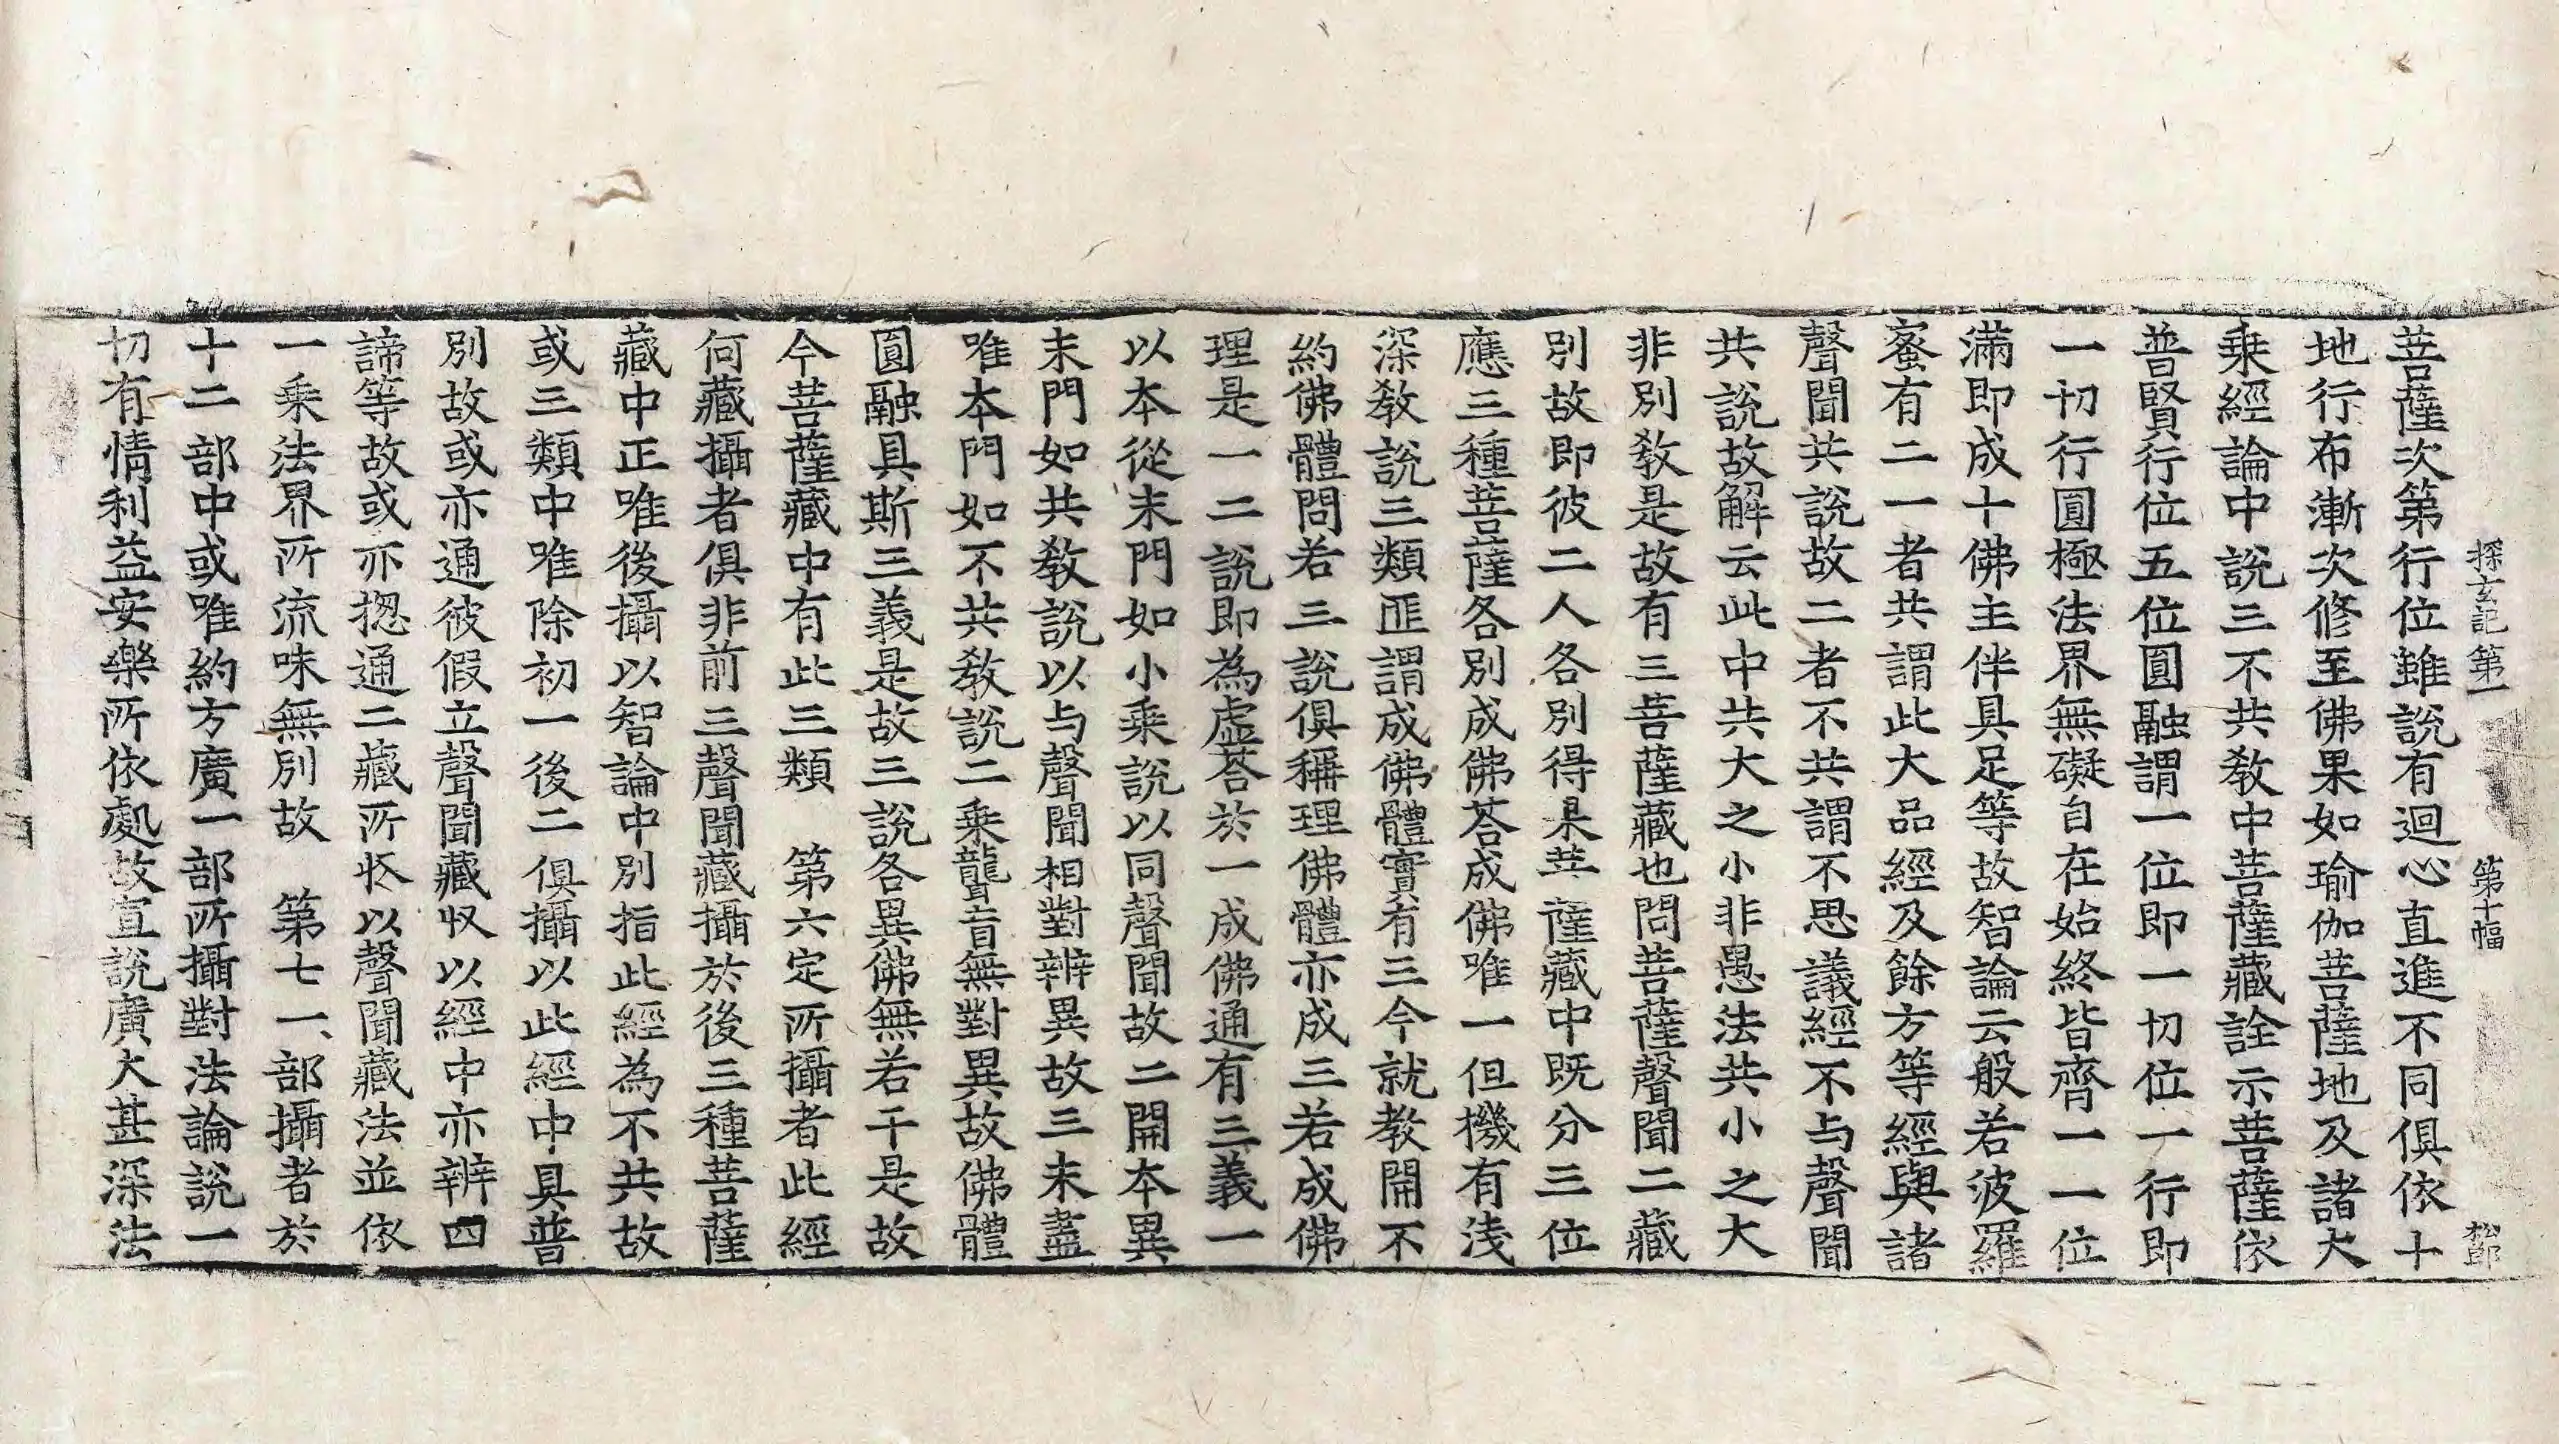 探玄記第一 第十幅 松郎
菩薩次第行位雖說有迴心直進不同俱依十
地行布漸次修至佛果如瑜伽菩薩地及諸大
乗經論中說三不共教中菩薩藏詮示菩薩依
普賢行位五位圓融謂一位即一切位一行即
一切行圓極法界無礙自在始終皆齊一一位
滿即成十佛主伴具足等故智論云般若波羅
蜜有二一者共謂此大品經及餘方等經與諸
聲聞共說故二者不共謂不思議經不与聲聞
共說故解云此中共大之小非愚法共小之大
非別教是故有三菩薩藏也問菩薩聲聞二藏
別故即彼二人各別得果菩薩藏中既分三位
應三種菩薩各別成佛荅成佛唯一但機有淺
深教說三類匪謂成佛體實有三今就教開不
約佛體問若三說俱稱理佛體亦成三若成佛
理是一二說即為虛荅於一成佛通有三義一
以本從末門如小乗說以同聲聞故二開本異
末門如共教說以与聲聞相對辨異故三末盡
唯本門如不共教說二乗聾盲無對異故佛體
圓融具斯三義是故三說各異佛無若干是故
今菩薩藏中有此三類　第六定所攝者此經
何藏攝者俱非前三聲聞藏攝於後三種菩薩
藏中正唯後攝以智論中別指此經為不共故
或三類中唯除初一後二俱攝以此經中具普
別故或亦通彼假立聲聞藏収以經中亦辨四
諦等故或亦揔通二藏所収以聲聞藏法並依
一乗法界所流味無別故　第七一部攝者於
十二部中或唯約方廣一部所攝對法論說一
切有情利益安樂所依處故宣說廣大甚深法